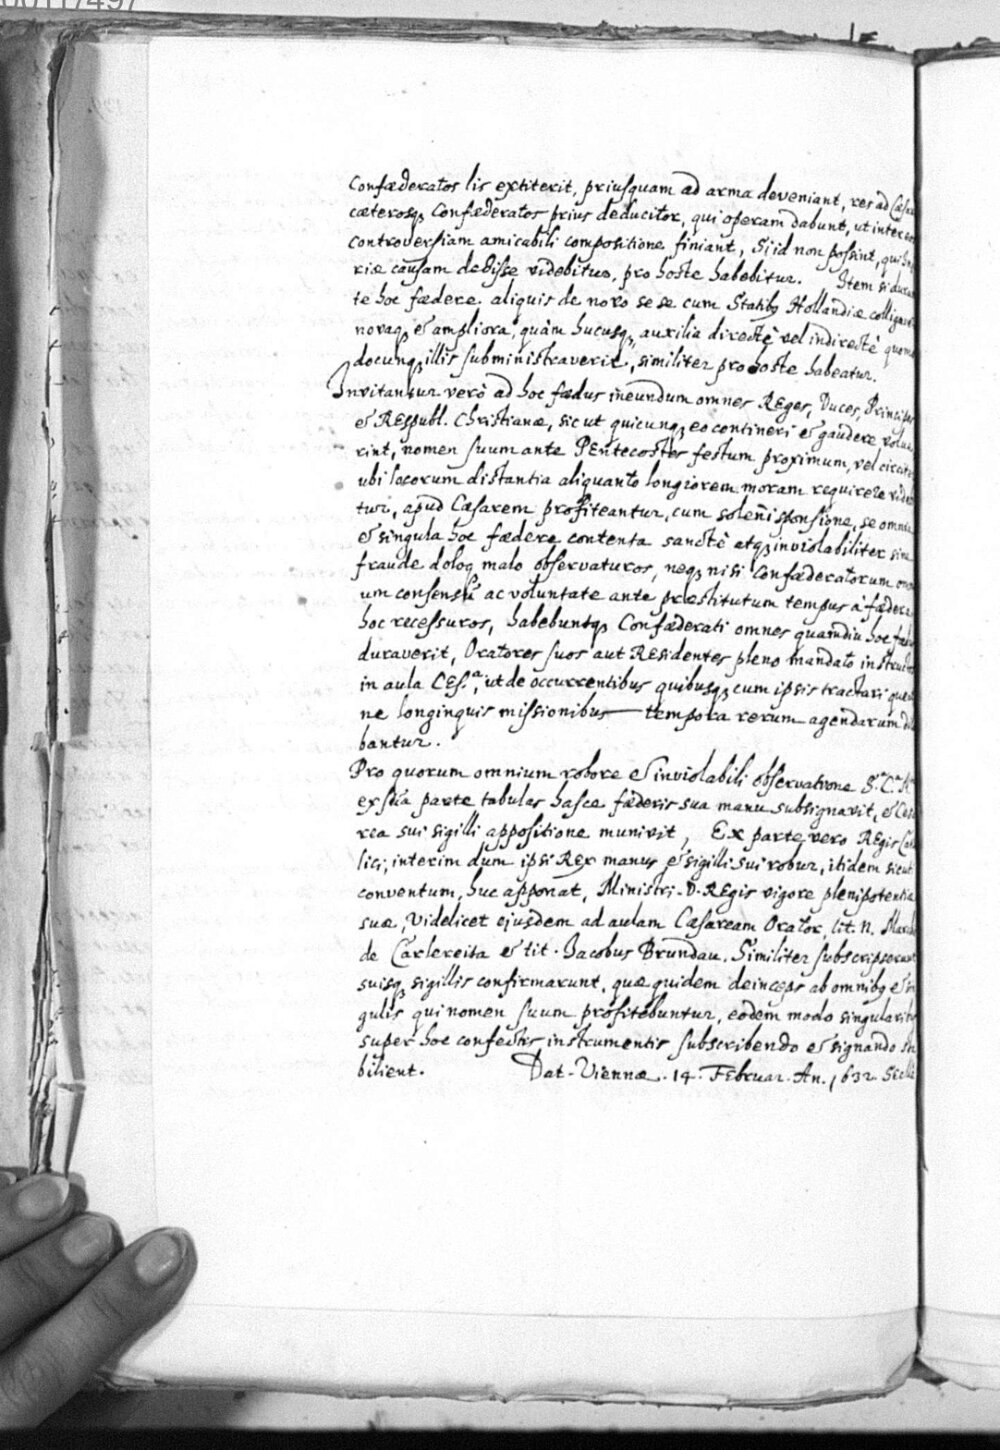 00117497
Confæderatos lis extiterit, priusquam ad arma deveniant, res ad Cæsar
cæterosq; Confæderatos prius deducitor, qui operam dabunt, ut inter eos
controversiam amicabili compositione finiant, Si id non possint, qui
riæ causam dedisse videbitur, pro hoste habebitur. Item si duran
te hoc fædere aliquis de novo se se cum Statib9 Hollandiæ colligav
novaq; & ampliora, quàm hucusq;, auxilia directè vel indirectè quomo
docunq; illis subministraverit, similiter pro hoste habeatur.
Invitantur verò ad hoc fædus ineundum omnes Reges, Duces, Principes
& Respubl. Christianæ, sic ut quicunq; eo contineri & gaudere volue
rint, nomen suum ante Pentecostes festum proximum, vel circiter
ubi locorum distantia aliquanto longiorem moram requirere vide
tur, apud Cæsarem profiteantur, cum soleñi sponsione, se omnia
& singula hoc fædere contenta sanctè atq; inviolabiliter sine
fraude doloq; malo observaturos, neq; nisi Confæderatorum omn
um consensu ac voluntate ante præstitutum tempus à fædere
hoc recessuros, habebuntq; Confæderati omnes quamdiu hoc fædu
duraverit, Oratores suos aut Residentes pleno mandato instructo
in aula Ces.ᵃ, ut de occurrentibus quibusq; cum ipsis tractari que
ne longinquis missionibus tempora rerum agendarum
bantur.
Pro quorum omnium robore & inviolabili observatione S.ᵃ C.ᵃ M
ex sua parte tabulas hasce fæderis sua manu subsignavit, & Cesa
rea sui sigilli appositione munivit, Ex parte vero Regis Cat
lici, interim dum ipsi Rex manus & sigilli sui robur, itidem sicut
conventum, huc apponat, Ministri D. Regis vigore plenipotentia
suæ, Videlicet ejusdem ad aulam Cæsaream Orator, tit. N. March
de Carlereita & tit. Jacobus Brundau. Similiter subscripserunt
suisq; sigillis confirmarunt, quæ quidem deinceps ab omnib9 & sin
gulis qui nomen suum profitebuntur, eodem modo singularib
super hoc confectis instrumentis subscribendo & signando
bilient. Dat. Viennæ. 14. Februar. An. 1632.